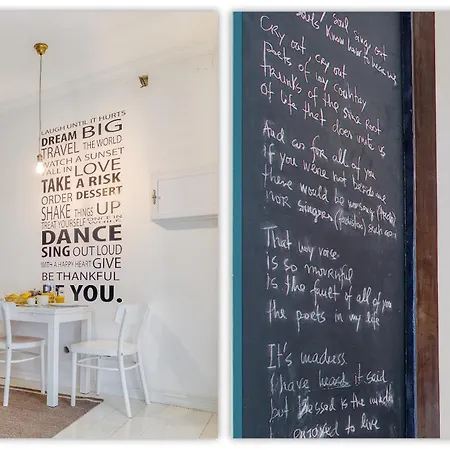 LAUGH UNTIL IT HURTS
DREAM BIG
TRAVEL THE WORLD
WATCH A SUNSET
FALL IN LOVE
TAKE A RISK
ORDER DESSERT
SHAKE THINGS UP
TREAT YOURSELF ONCE IN
DANCE
SING OUT LOUD
WITH A HAPPY HEART GIVE
BE THANKFUL
BE YOU.
soul sing out
souls know how to
Cry out cry out
Poets of my country
Trunks of the same root
of life that does unite us
And as for all of you
if you were not beside me
there would be no
nor singers
That my voice
is so mournful
is the fault of all of you
the poets in my life
It's madness
I have heard it said
but blessed is the
I to live